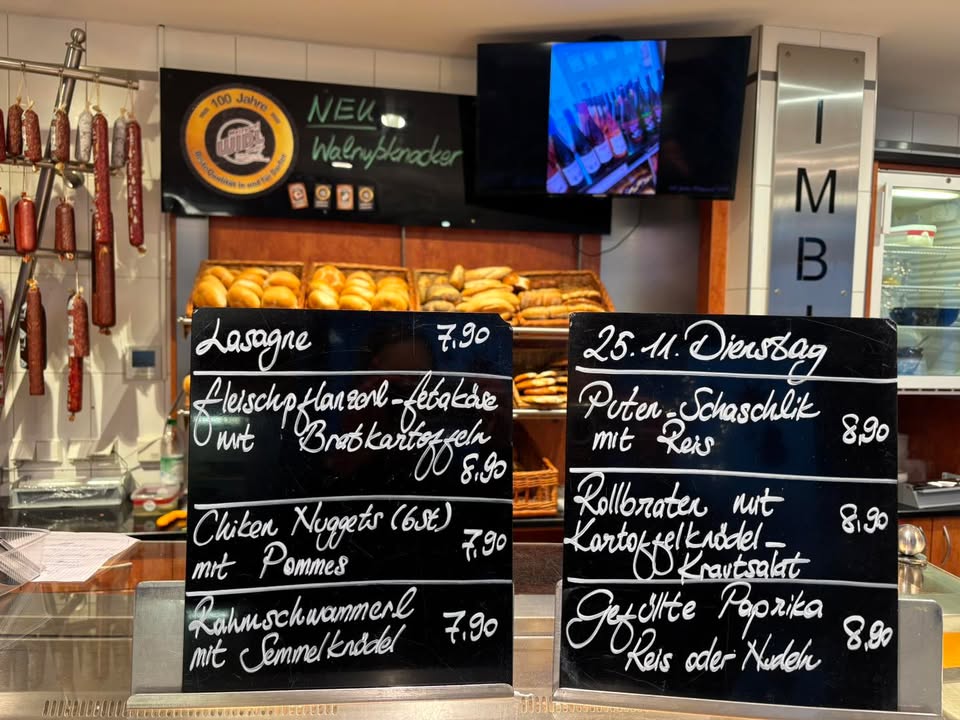 100 Jahre
NEU
Walnußknacker
I
M
B
Lasagne 7,90
Fleischpflanzerl-fetakäse
mit Bratkartoffeln
8,90
Chiken Nuggets (6St)
mit Pommes 7,90
Rahmschwammerl
mit Semmelknödel 7,90
25.11. Dienstag
Puten-Schaschlik
mit Reis 8,90
Rollbraten mit
Kartoffelknödel- 8,90
Krautsalat
Gefüllte Paprika
Reis oder Nudeln 8,90